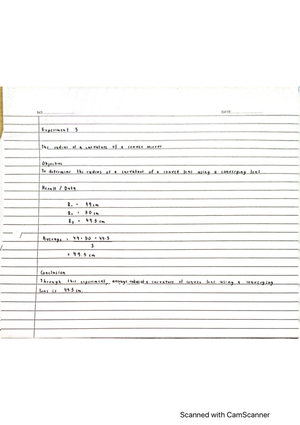 NO.
DATE:
Experiment 5
The radius of a curvature of a convex mirror
Objective
To determine the radius of a curvature of a convex lens using a converging lens
Result / Data
R₁ = 49 cm
R₂ = 50 cm
R₃ = 49.5 cm
Average = 49 + 50 + 49.5
3
= 49.5 cm
Conclusion
Through this experiment, average radius of a curvature of convex lens using a converging
lens is 49.5 cm.
Scanned with CamScanner